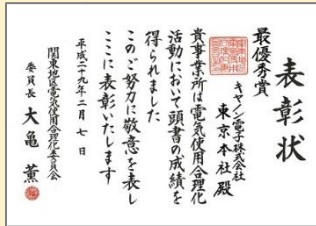 表彰状
最優秀賞
キヤノン電子株式会社
東京本社殿
貴事業所は電気使用合理化
活動において頭書の成績を
得られました
このご努力に敬意を表し
ここに表彰いたします
平成二十九年二月七日
関東地区電気使用合理化委員会
委員長 大亀薫